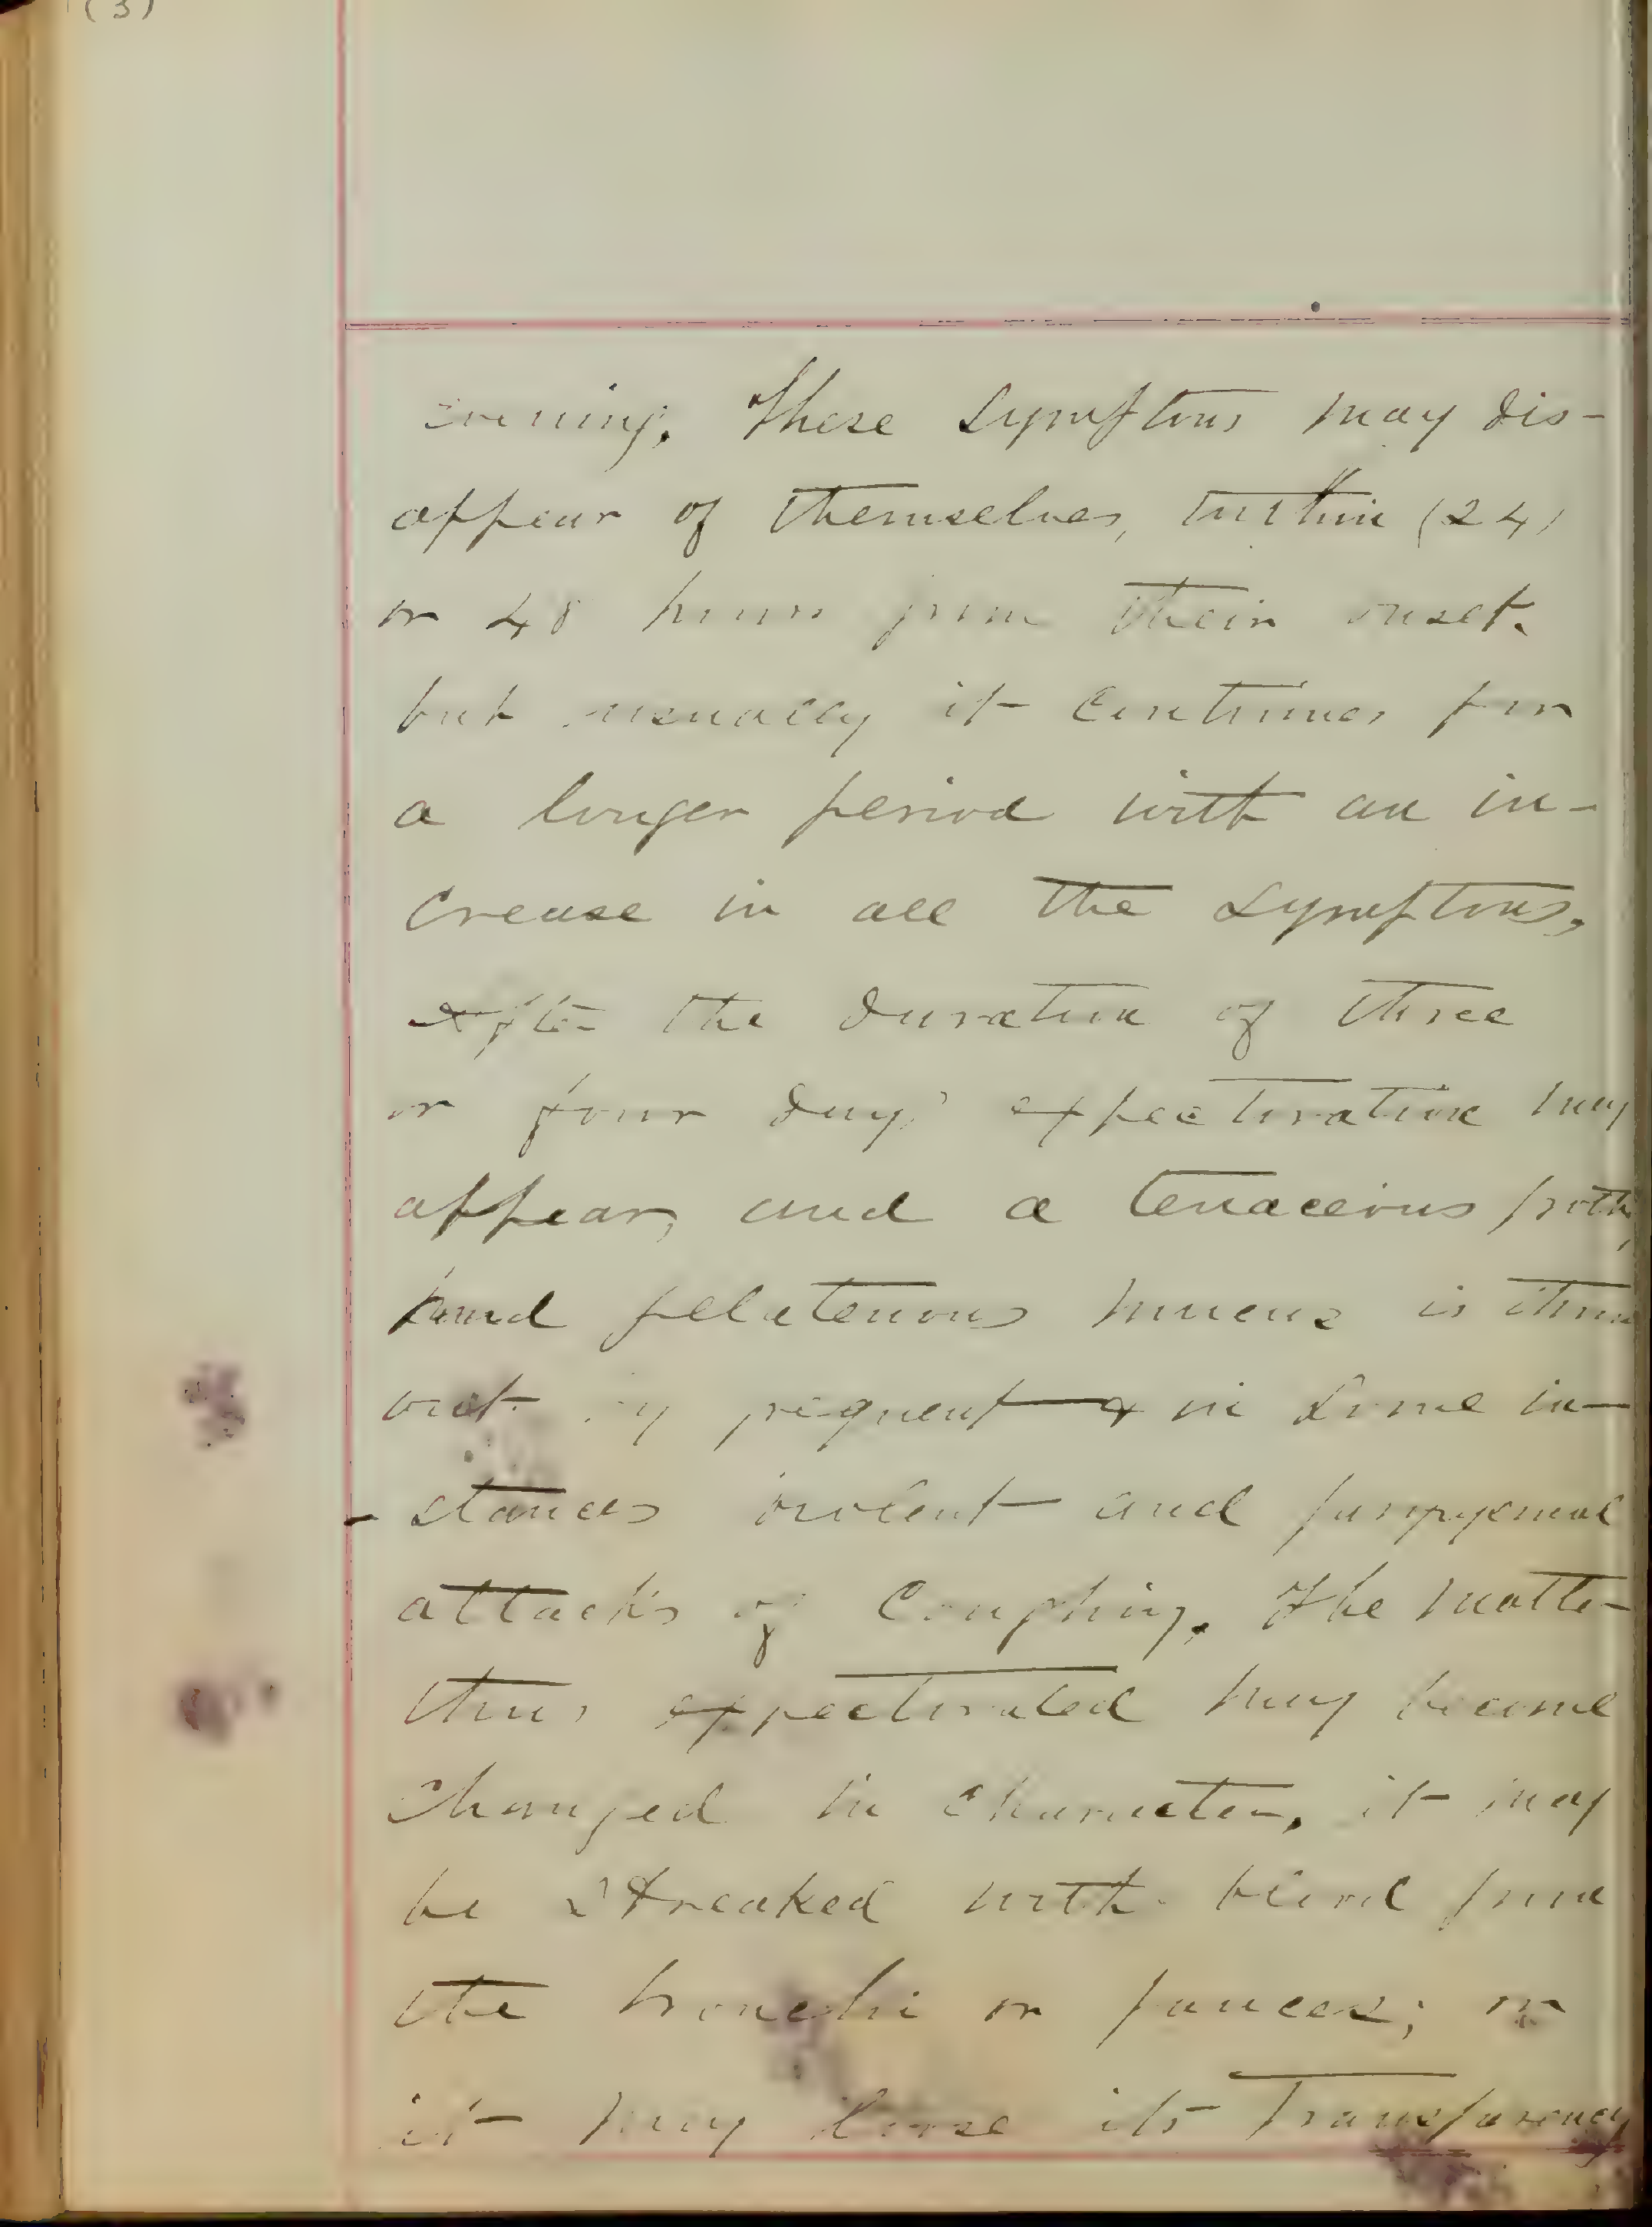 (3)
evening. These symptoms may dis-
appear of themselves, within (24)
or 48 hours from their onset.
but usually it continues for
a longer period with an in-
crease in all the symptoms,
After the duration of three
or four days' expectoration may
appear, and a tenaceious froth,
and gelatenous mucus is thrown
out by frequent & in some in-
-stances violent and
attacks of Coughing. The matter
thus expectorated may become
changed in character, it may
be streaked with blood from
the bronchi or fauces; or
it may loose its Transparency